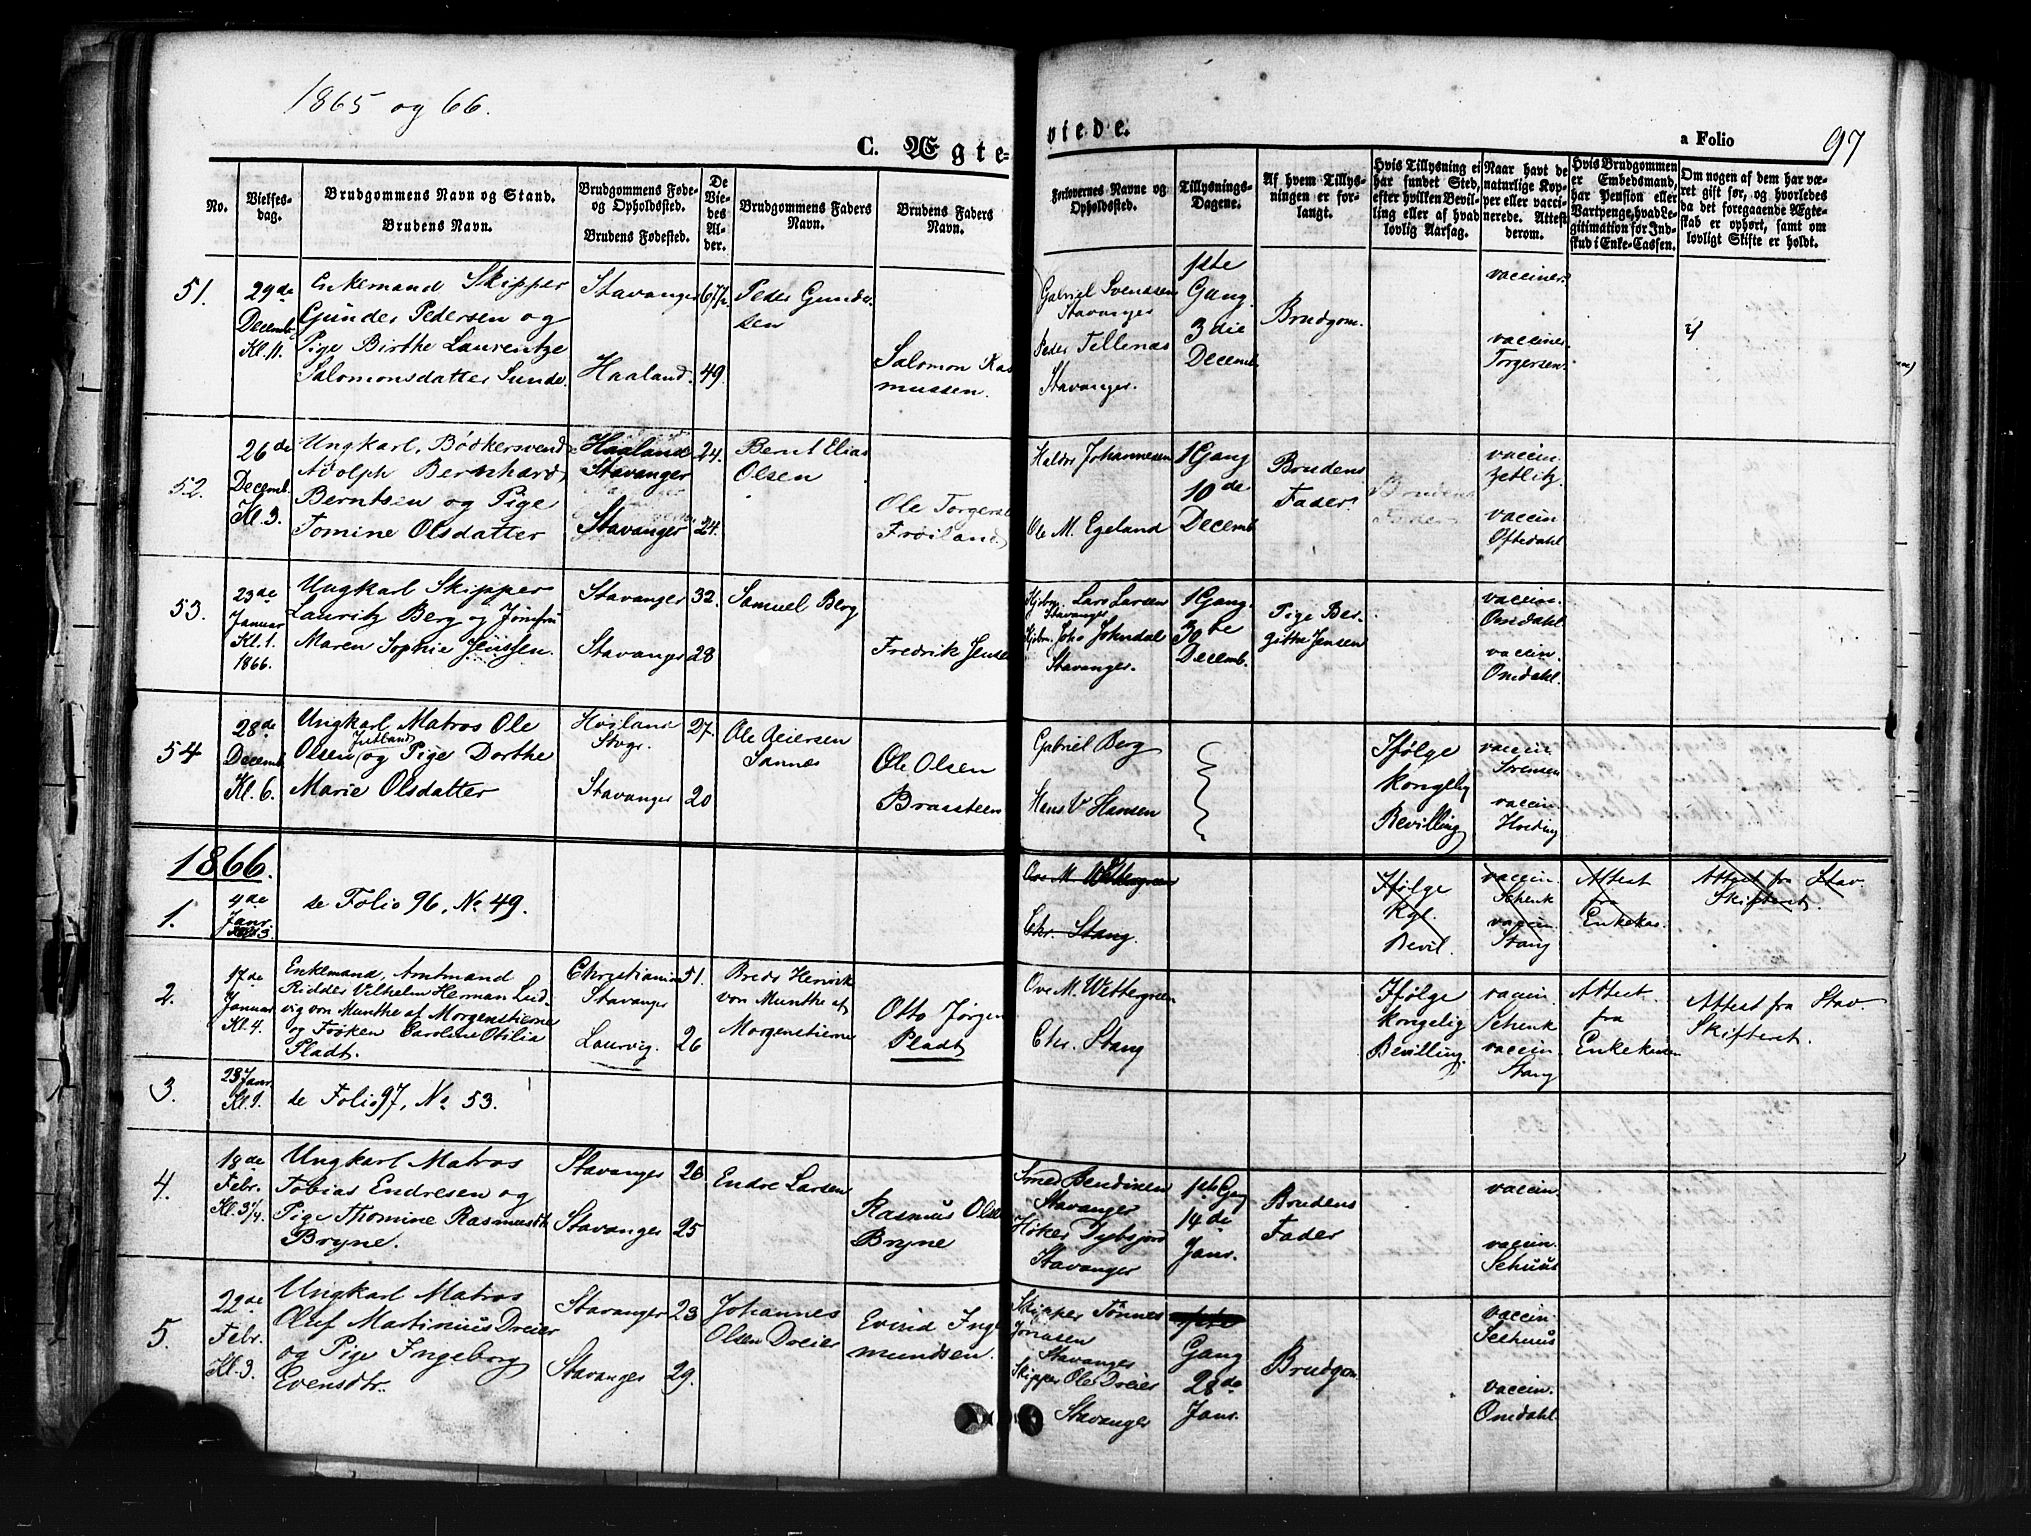 1865 og 66.
C. Ægte-
viede.
a Folio 97
No.
Vielses-
dag.
Brudgommens Navn og Stand.
Brudens Navn.
Brudgommens Føde-
og Opholdssted.
Brudens Fødested.
De
Vie-
des
Al-
der.
Brudgommens Faders
Navn.
Brudens Faders
Navn.
Forlovernes Navne og
Opholdssted.
Tillysnings-
Dagene.
Af hvem Tillys-
ningen er for-
langt.
Hvis Tillysning ei
har fundet Sted,
efter hvilken Bevil-
ling eller af hvad
lovlig Aarsag.
Naar havt de
naturlige Kop-
per eller vacci-
nerede. Attest
derom.
Hvis Brudgommen
er Embedsmand,
har Pension eller
Vartpenge, hvad Le-
gitimation for Ind-
skud i Enke-Cassen.
Om nogen af dem har væ-
ret gift før, og hvorledes
da det foregaaende Ægte-
skab er ophørt, samt om
lovligt Skifte er holdt.
51.
29de
Decemb.
Kl. 11.
Enkemand Skipper
Gunder Pedersen og
Pige Birthe Laurentze
Salomonsdatter Sunde.
Stavanger
Haaland.
49.
Peder Gunder
sen
Salomon Ras
mussen.
Gabriel Svendsen
Stavanger
Peder Tellenæs
Stavanger.
1ste
Gang.
3die
Decemb.
Brudgom.
vacciner.
vacciner.
Torgersen.
52.
26de
Decemb.
Kl. 3.
Ungkarl, Bødkersvend
Adolph Bernhard
Berntsen og Pige
Tomine Olsdatter
Haaland
Stavanger
Stavanger
24.
24.
Bernt Elias
Olsen
Ole Torgersen
Frøiland
Haldor Johannesen
Ole M. Egeland
1 Gang
10de
Decemb.
Brudens
Fader
Brudens
Fader
vaccin.
Zetlitz.
vaccin
Oftedahl
53.
23de
Januar
Kl. 1.
1866.
Ungkarl Skipper
Lauritz Berg og Jomfru
Maren Sophie Jenssen.
Stavanger
Stavanger
32.
28
Samuel Berg
Fredrik Jensen
Lars Larsen
Stavanger
Johs Johndal
Stavanger.
1 Gang.
Decemb.
Pige Ber-
githe Jensen
vaccin.
Omdahl
vaccin.
Omdahl.
54
28de
Decemb.
Kl. 6.
Ungkarl Matros Ole
Olsen Jutland og Pige Dorthe
Marie Olsdatter
Høiland
Stvgr.
Stavanger
27.
20
Ole Reiersen
Sannes
Ole Olsen
Braasteen
Gabriel Berg
Hans V Hansen
Ifølge
kongelig
Bevilling
vaccin.
Sørensen
vaccin.
Harding
1866.
1.
9de
Janr.
de Folio 96, No 49.
Ove M. Wettergreen
Chr. Stang.
Ifølge
Kgl.
Bevil
vaccin.
Schenk
vaccin.
Stang
Attest
fra
Enkekas.
Attest fra Stav
Skifteret.
2.
17de
Januar
Kl. 4.
Enkemand, Amtmand
Ridder Vilhelm Herman Lud-
vig von Munthe af Morgenstierne
og Frøken Caroline Otilia
Pladt.
Christiania
Stavanger
Laurvig.
51.
26
Bredo Henrik
von Munthe af
Morgenstierne
Otto Jørgen
Pladt
Ove M. Wettergreen
Chr. Stang
Ifølge
kongelig
Bevilling.
vaccin.
Schenk
vaccin.
Stang
Attest.
fra
Enkekassen
Attest fra Stav.
Skifteret.
3.
23 Janr.
Kl. 1.
de Folio 97, No 53.
4.
18de
Febr.
Kl. 3¼.
Ungkarl Matros
Tobias Endresen og
Pige Thomine Rasmusdt.
Bryne.
Stavanger
Stavanger
26
25
Endre Larsen
Rasmus Olsen
Bryne
Smed Bendixen
Stavanger
Høker Tybsjord
Stavanger
1ste Gang
14de
Janr.
Brudens
Fader
vaccin.
vaccin.
Schuus
5.
22de
Febr.
Kl. 3.
Ungkarl Matros
Oluf Martinius Dreier
og Pige Ingeborg
Evensdtr.
Stavanger
Stavanger
23
29.
Johannes
Olsen Dreier
Evind Inge
mundsen.
Skipper Tönnes
Jonasen
Stavanger
Skipper Ole Dreier
Stavanger
1ste
Gang
28de
Janr.
Brudgom
vaccin.
Schuus
vaccin.
Omdahl.